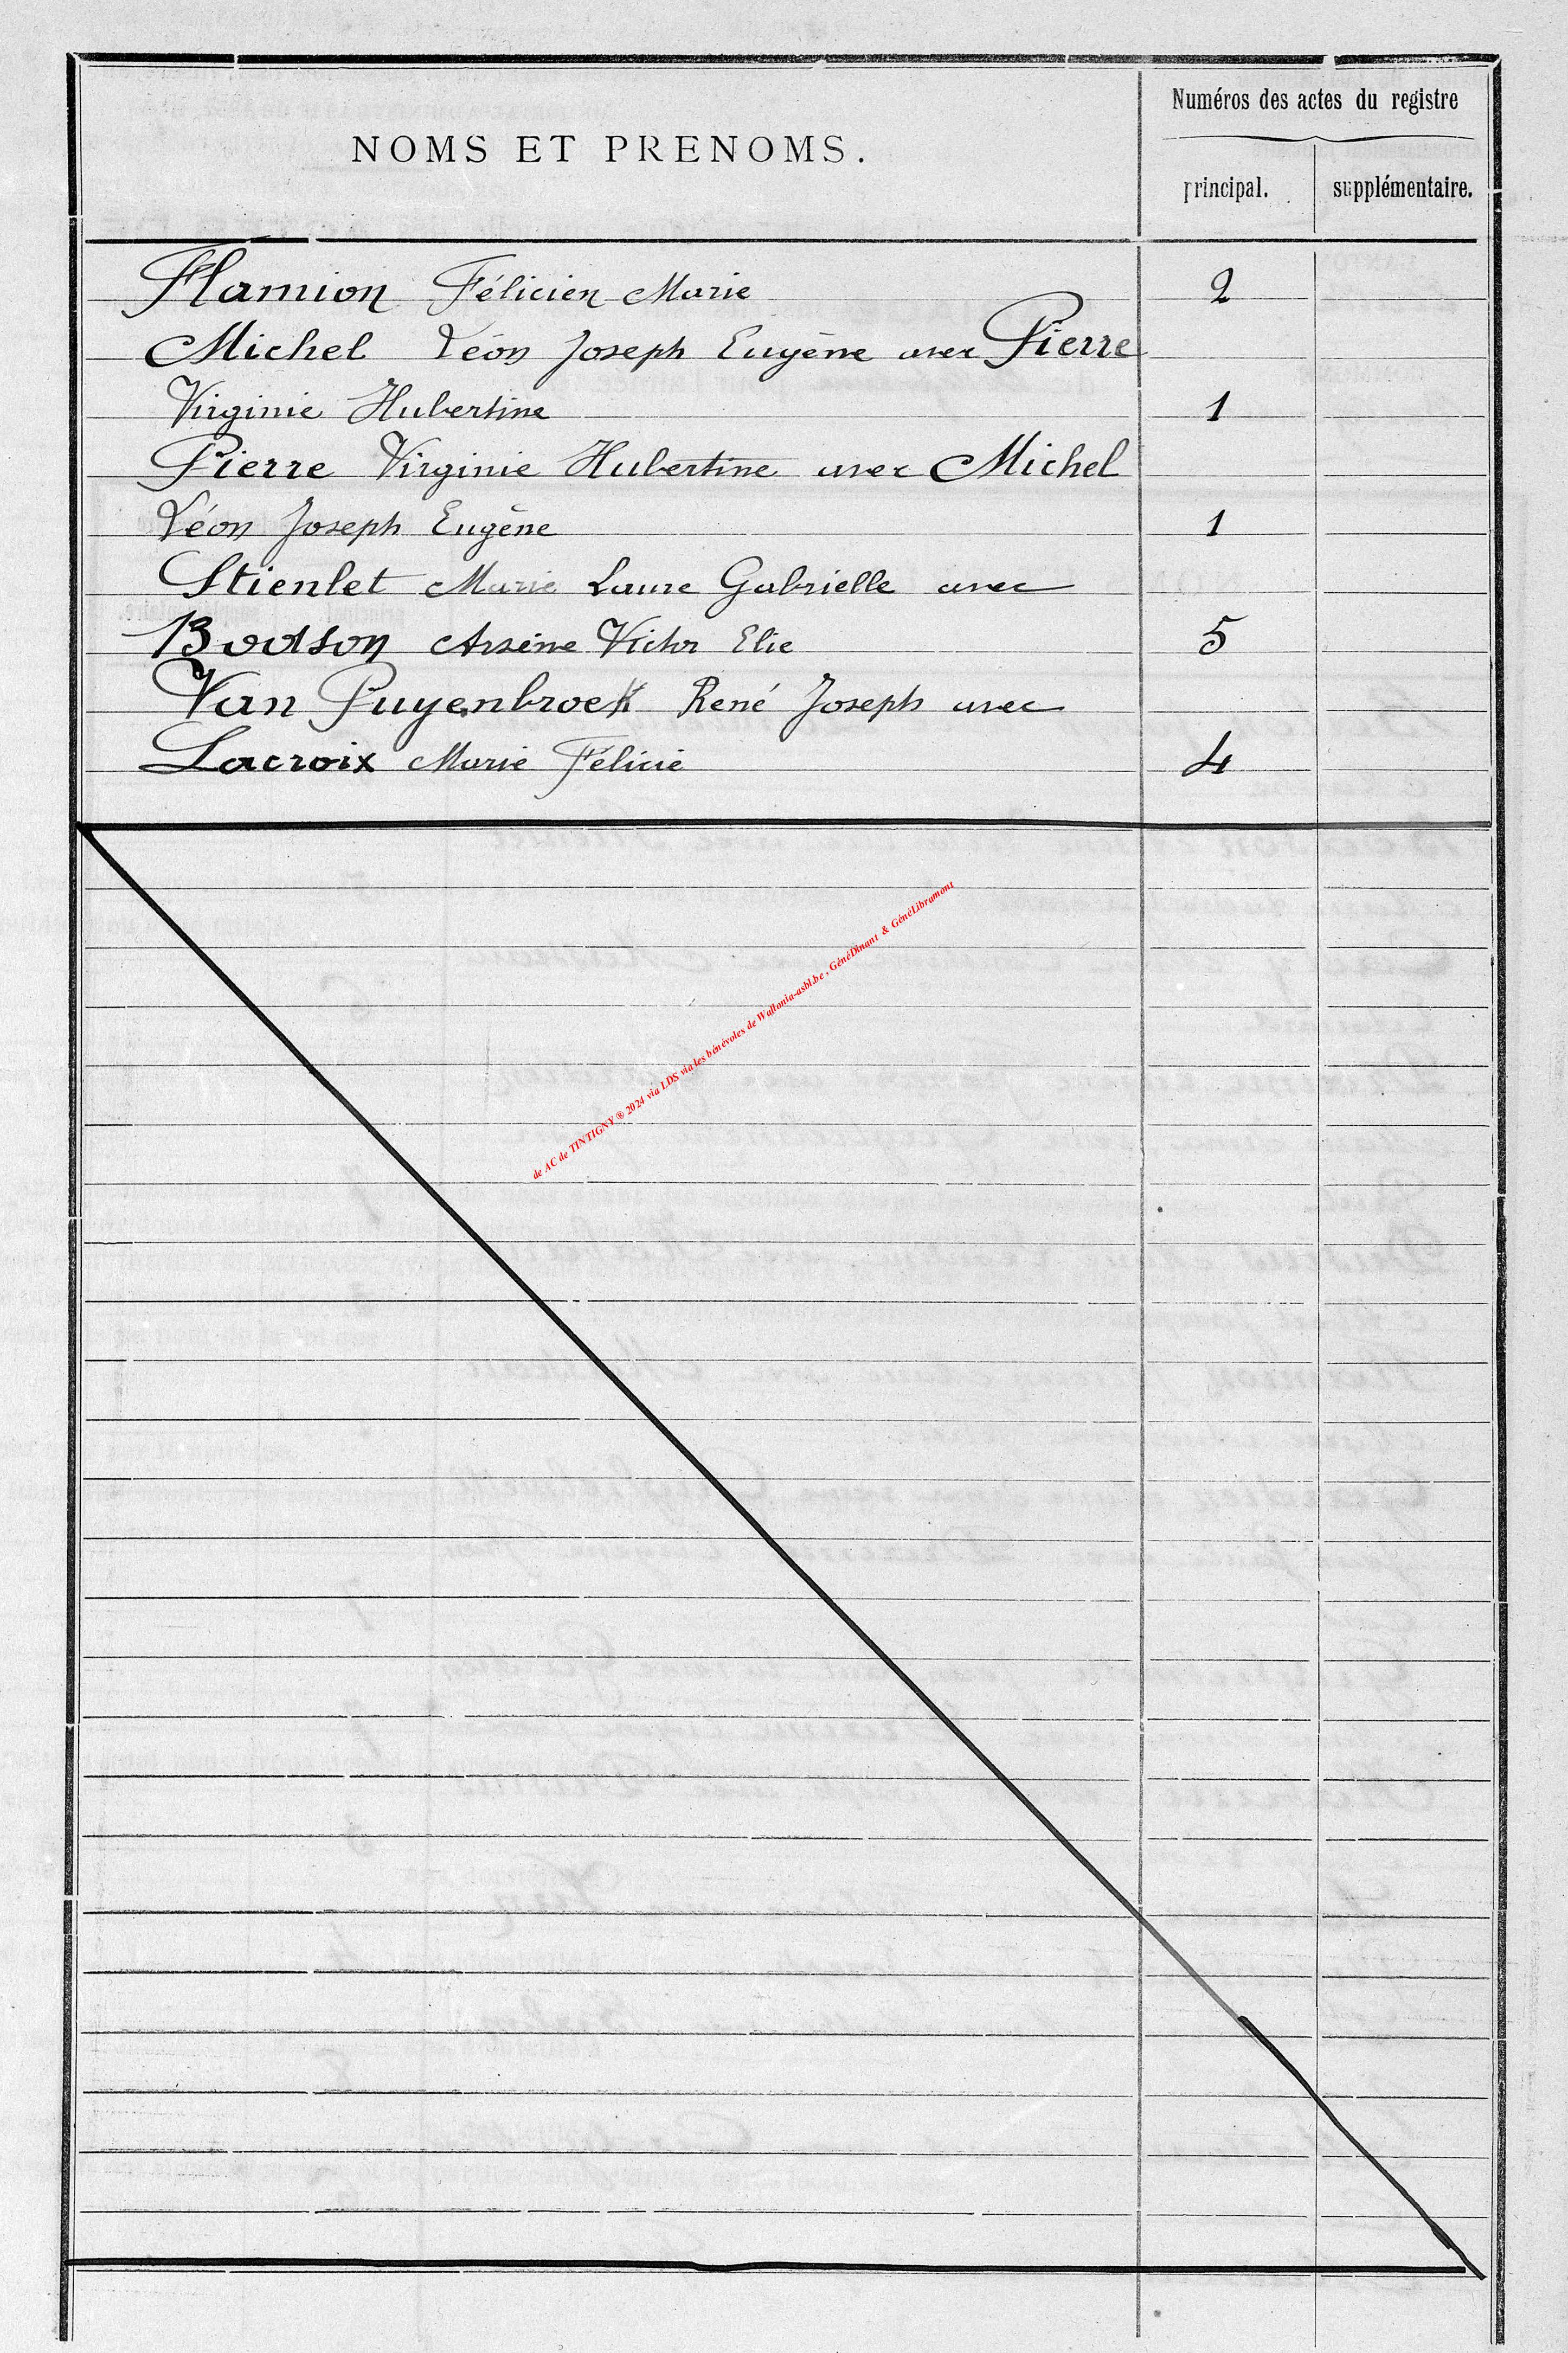 NOMS ET PRENOMS.
Numéros des actes du registre
principal.
supplémentaire.
Flamion Félicien Marie 2
Michel Léon Joseph Eugène avec Pierre
Virginie Hubertine 1
Pierre Virginie Hubertine avec Michel
Léon Joseph Eugène 1
Stienlet Marie Laure Gabrielle avec
Bodson Arsène Victor Elie 5
Van Puyenbroek René Joseph avec
Lacroix Marie Félicie 4
de AC de TINTIGNY ® 2024 via LDS via les bénévoles de Wallonia-asbl.be , GénéDinant & GénéLibramont